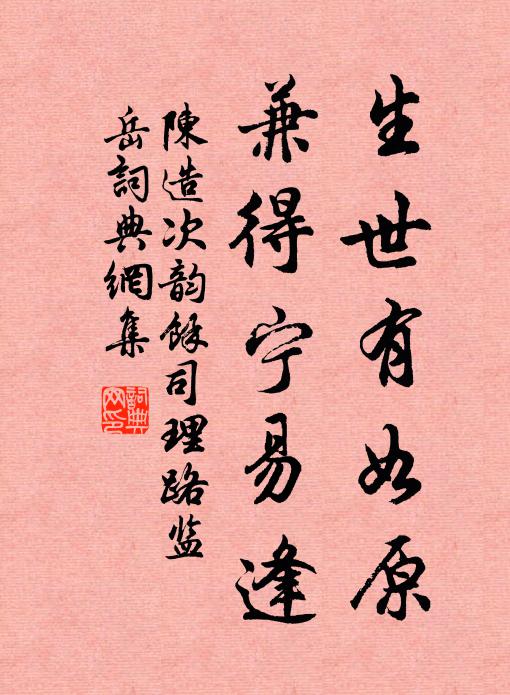 生世有如原
兼得宁易逢
陳造次韵餘司理路监
岳詞典網集
詞典
网印